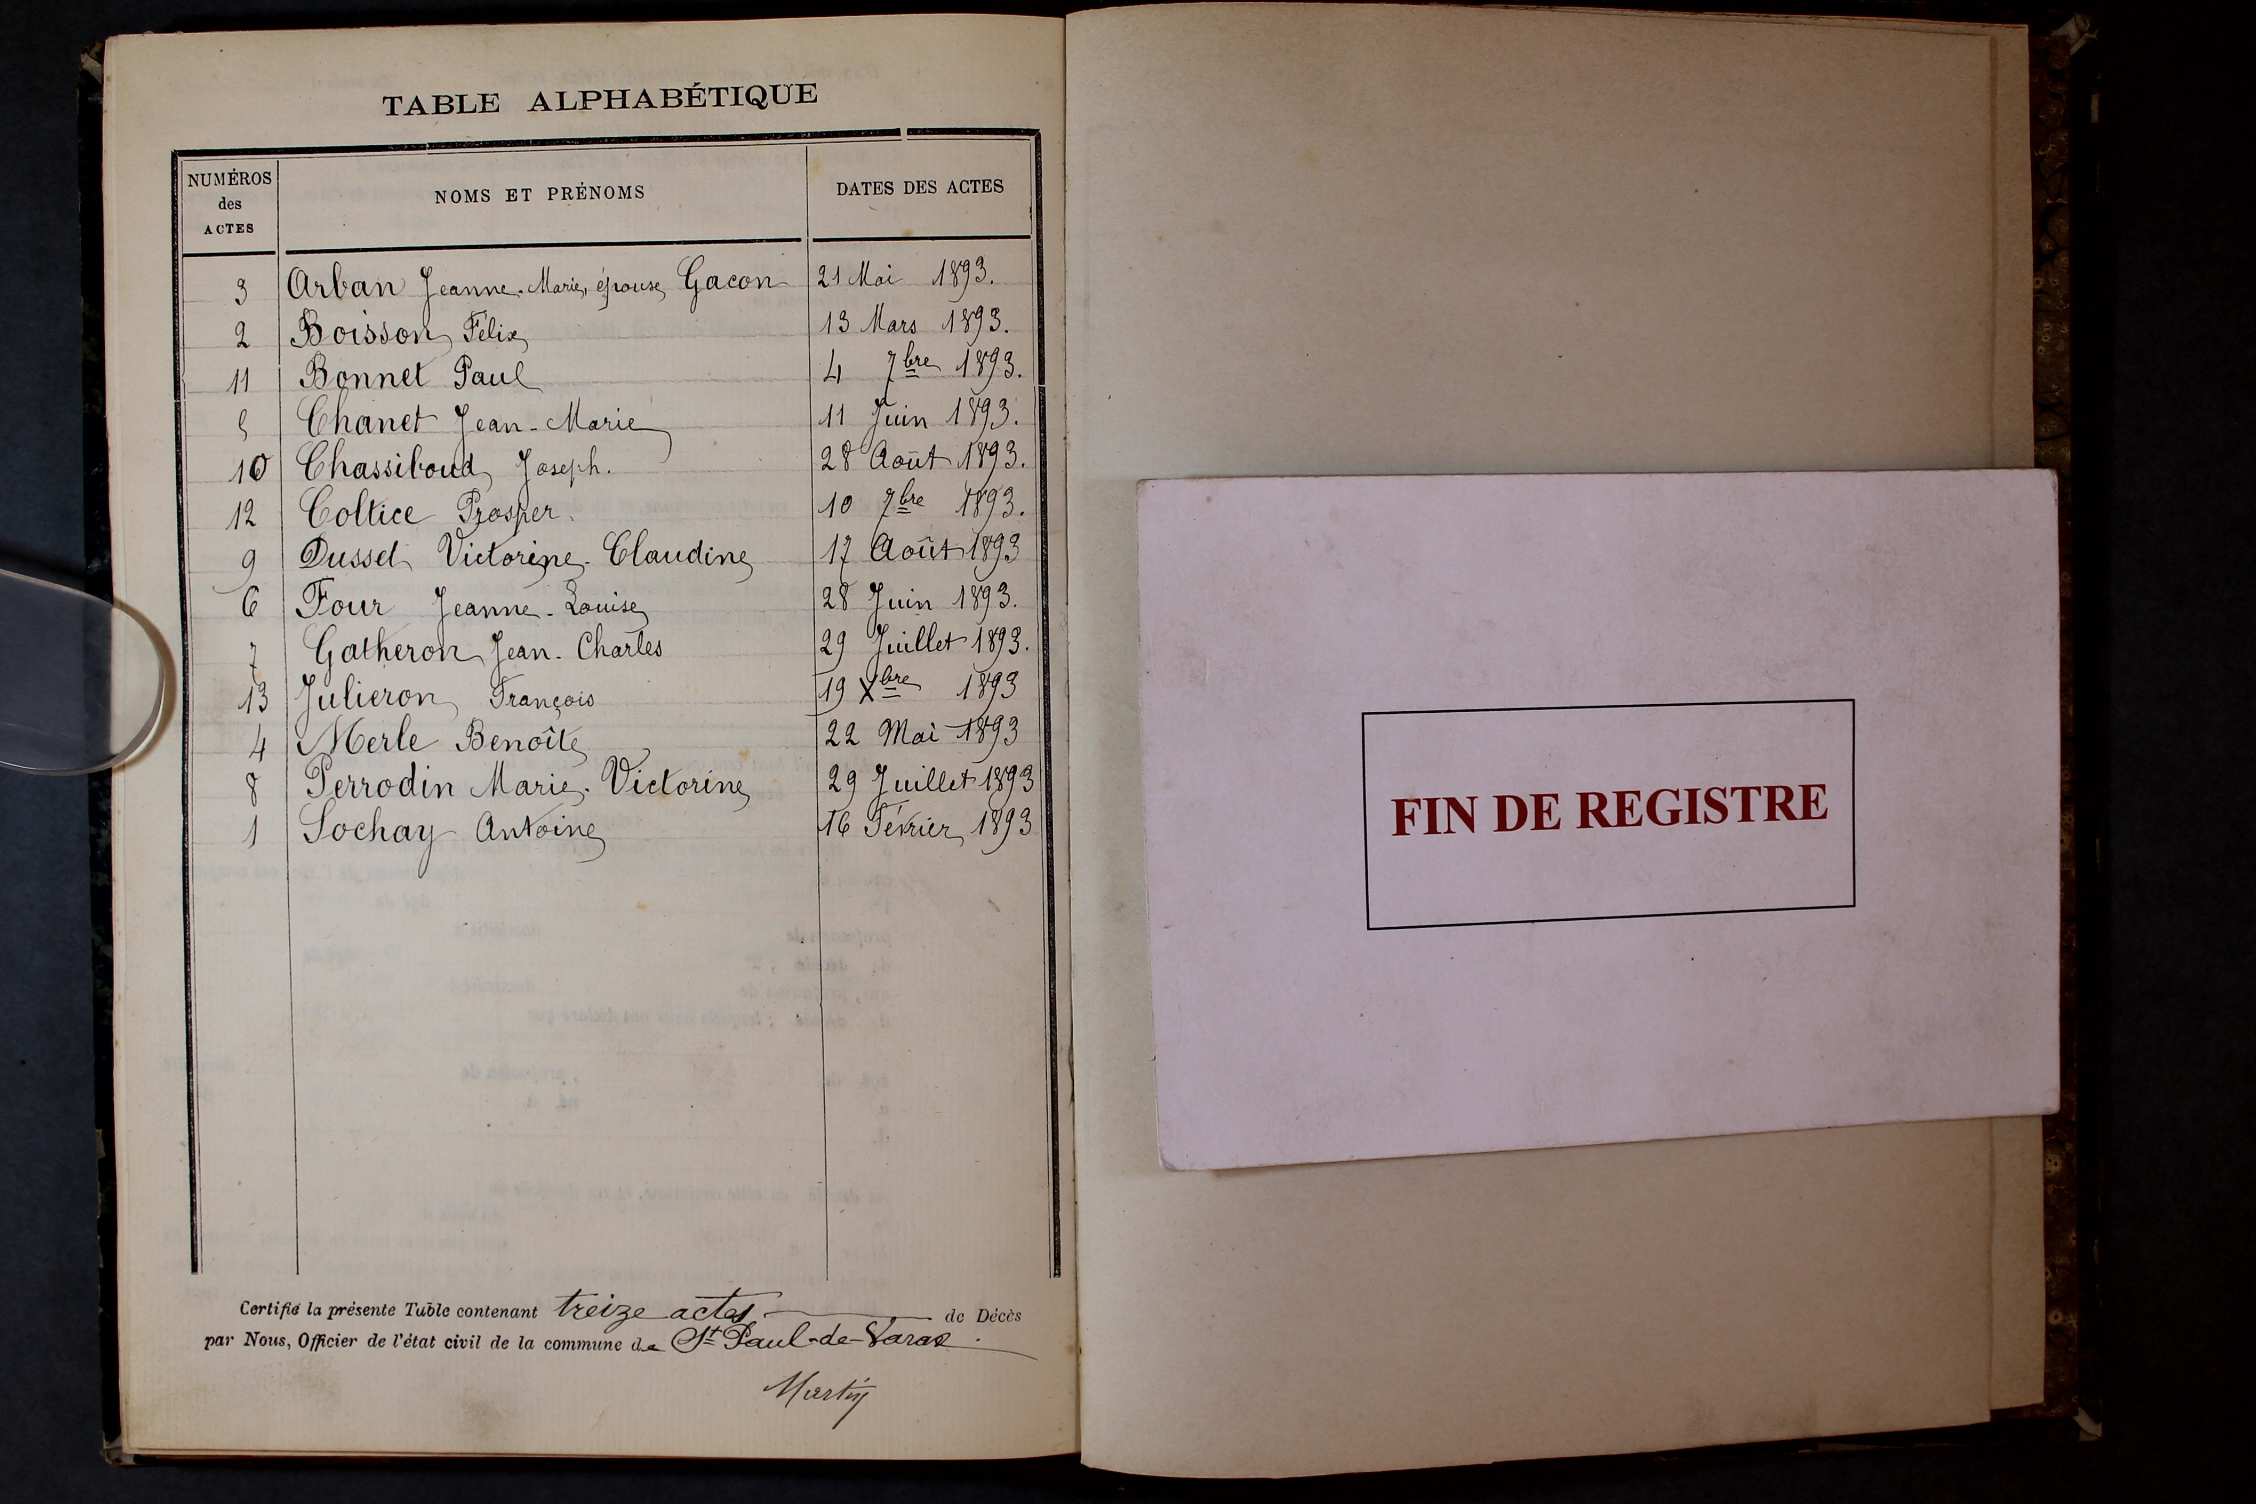 TABLE ALPHABÉTIQUE
NUMÉROS des ACTES
NOMS ET PRÉNOMS
DATES DES ACTES
3 Arban Jeanne-Marie, épouse Gacon 21 Mai 1893.
2 Boisson Félix 13 Mars 1893.
11 Bonnet Paul 4 7bre 1893.
5 Chanet Jean-Marie 11 Juin 1893.
10 Chassiboud Joseph. 28 Août 1893.
12 Coltice Prosper. 10 7bre 1893.
9 Dusset Victorine-Claudine 17 Août 1893
6 Four Jeanne-Louise 28 Juin 1893.
7 Gatheron Jean-Charles 29 Juillet 1893.
13 Julieron François 19 Xbre 1893
4 Merle Benoîte 22 Mai 1893
8 Perrodin Marie-Victorine 29 Juillet 1893
1 Sochay Antoine 16 Février 1893
Certifié la présente Table contenant treize actes de Décès
par Nous, Officier de l'état civil de la commune de St Paul-de-Varax.
Martin
FIN DE REGISTRE